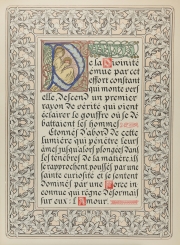 De la Divinité
émue par cet
effort constant
qui monte vers
elle, descend un premier
rayon de vérité qui vient
éclairer le gouffre où se dé-
battaient les hommes
Étonnés d'abord de cette
lumière qui pénètre leurs
âmes jusqu'alors plongées dans
les ténèbres de la matière, ils
se rapprochent poussés par une
sainte curiosité et se sentent
dominés par une force in-
connue qui règne désormais
sur eux : l'Amour.